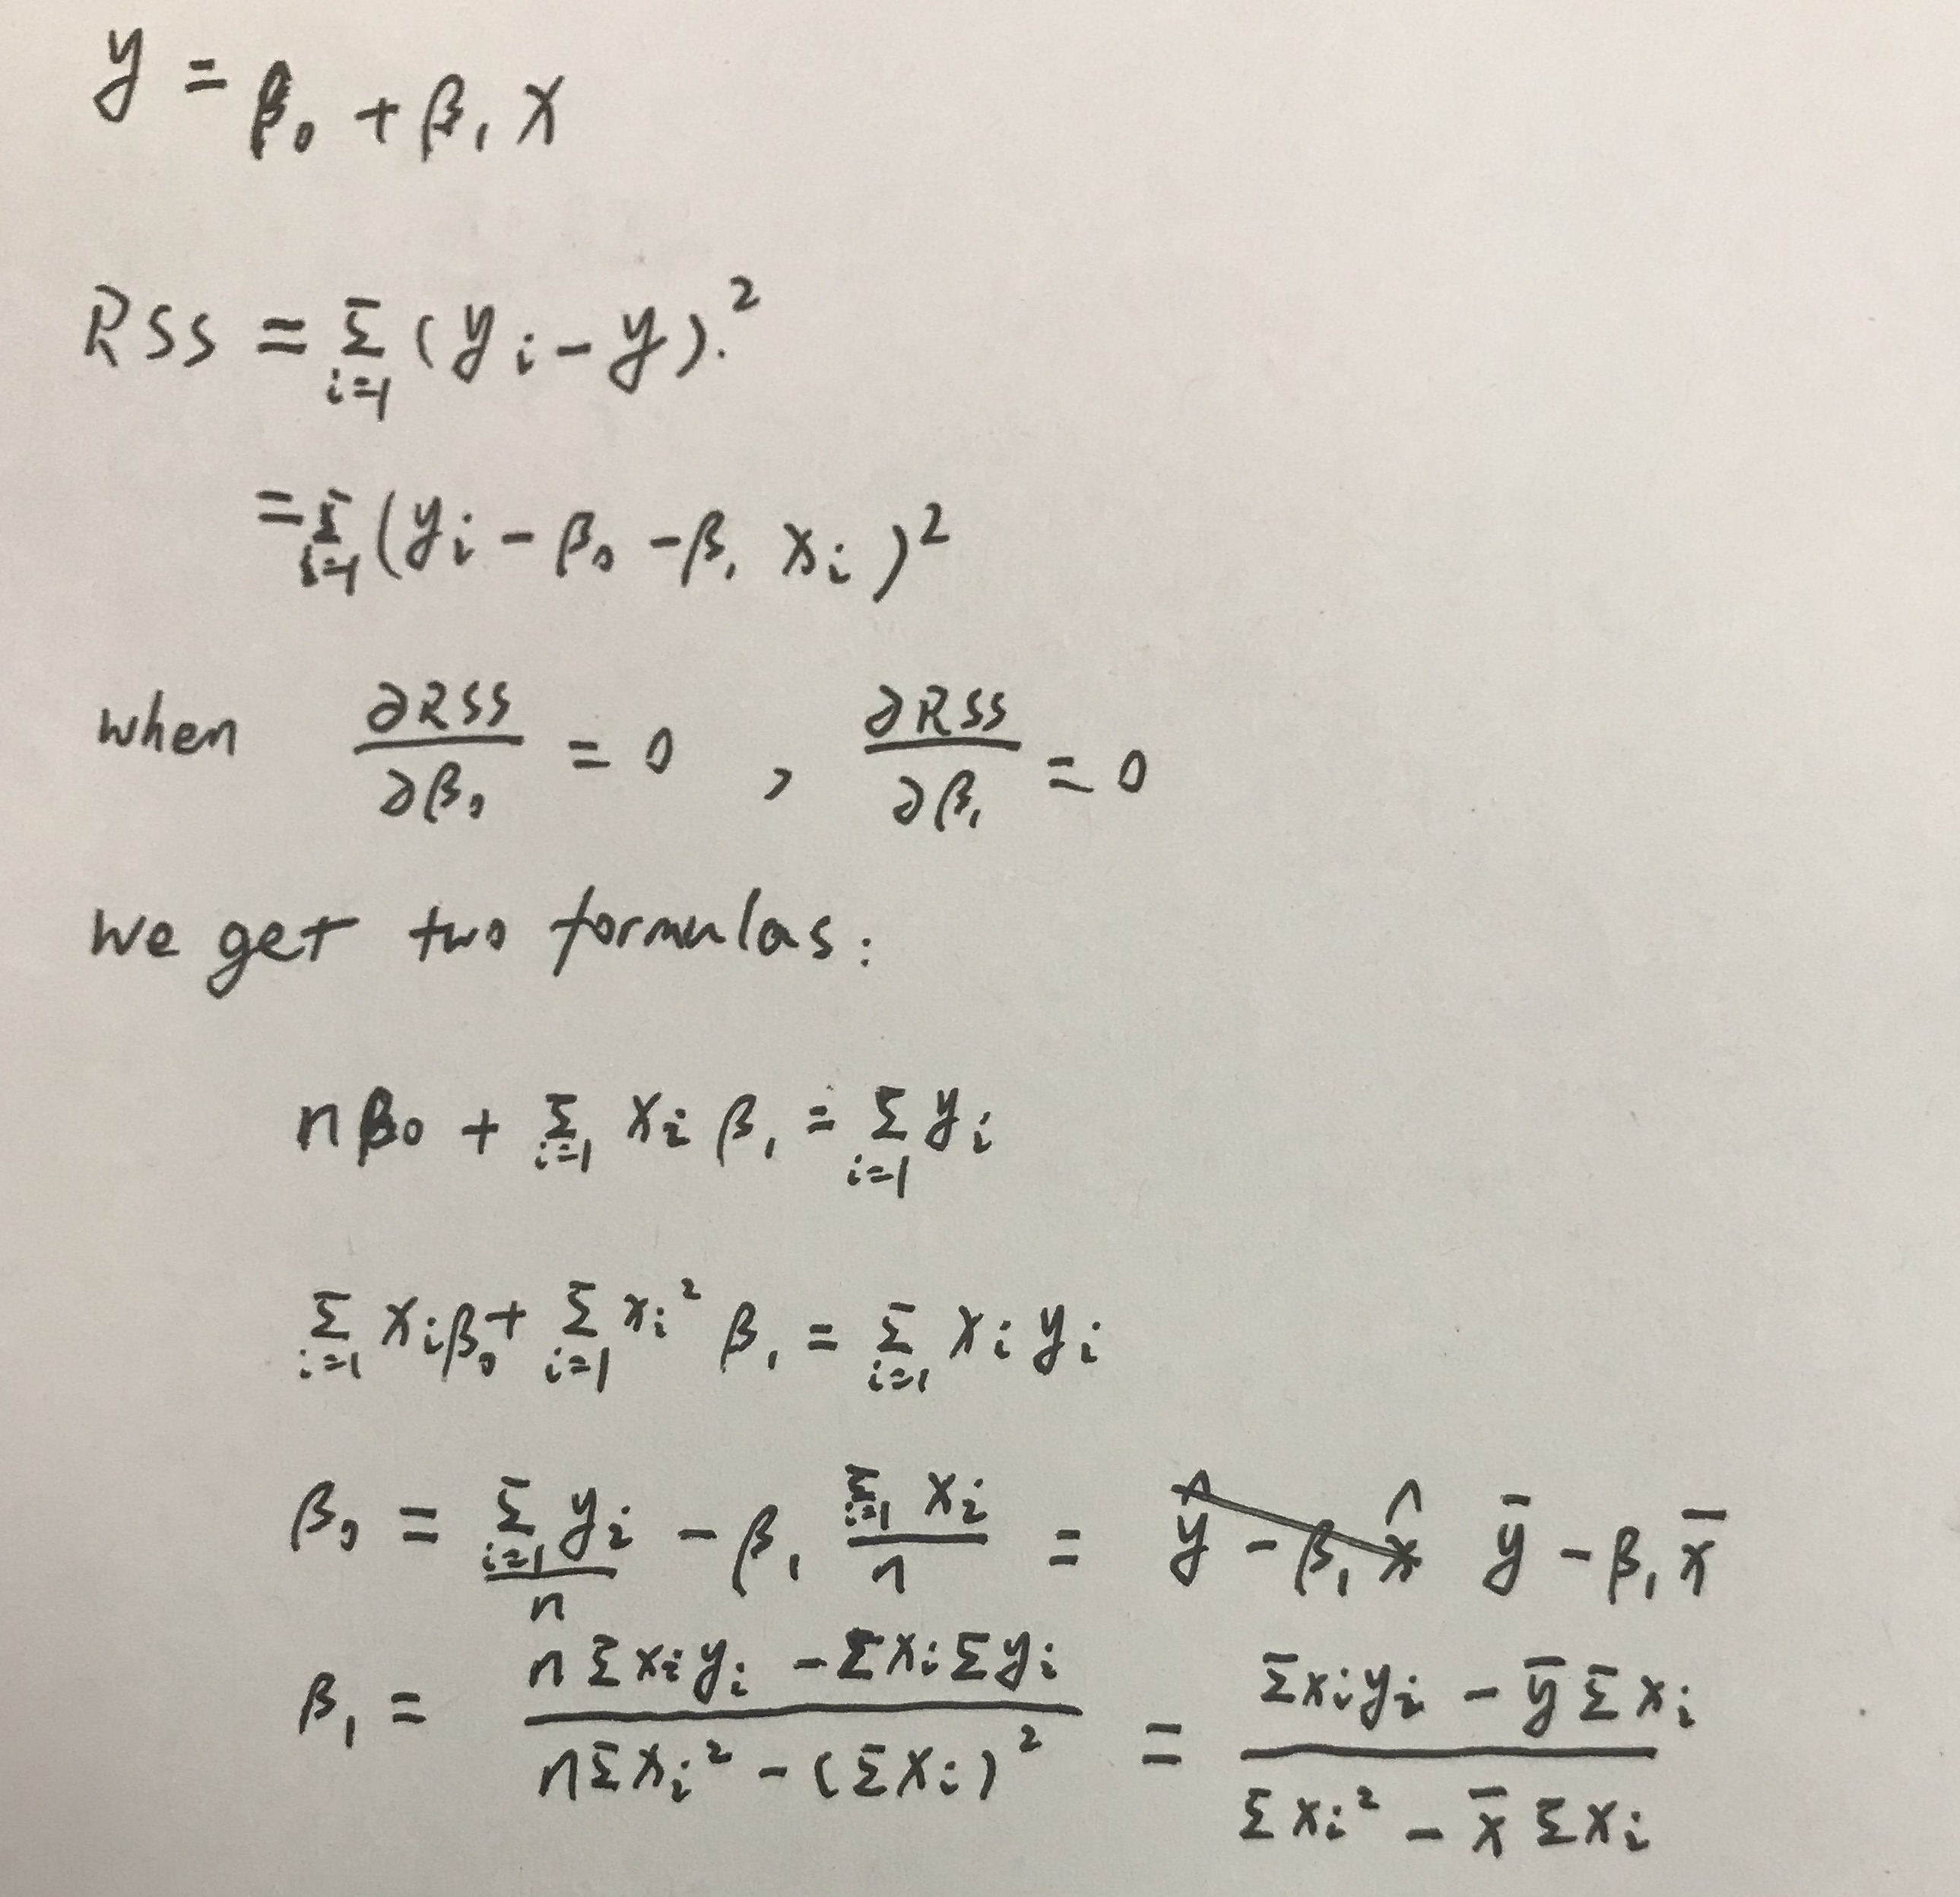 y = β₀ + β₁ x
RSS = Σ_{i=1} (y_i - y).²
= Σ_{i=1} (y_i - β₀ - β₁ x_i)²
when ∂RSS/∂β₀ = 0 , ∂RSS/∂β₁ = 0
we get two formulas:
nβ₀ + Σ_{i=1} x_i β₁ = Σ_{i=1} y_i
Σ_{i=1} x_i β₀ + Σ_{i=1} x_i² β₁ = Σ_{i=1} x_i y_i
β₀ = Σ_{i=1} y_i / n - β₁ Σ_{i=1} x_i / n = ŷ - β₁ x̂ ȳ - β₁ x̄
β₁ = (n Σ x_i y_i - Σ x_i Σ y_i) / (n Σ x_i² - (Σ x_i)²) = (Σ x_i y_i - ȳ Σ x_i) / (Σ x_i² - x̄ Σ x_i)